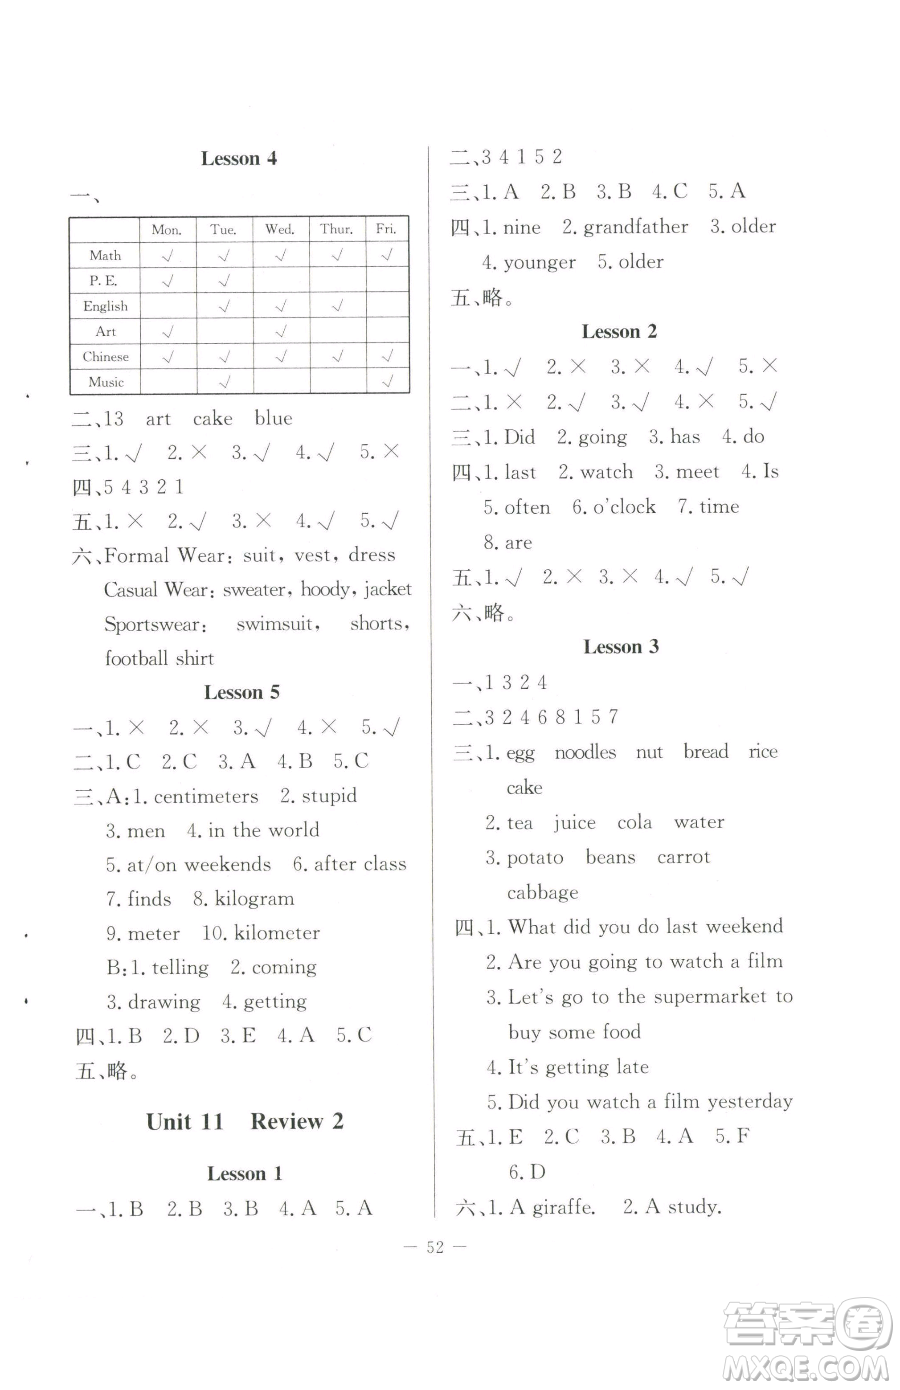 Lesson 4
一、
Mon. Tue. Wed. Thur. Fri.
Math √ √ √ √ √
P. E. √ √
English √ √ √
Art √ √
Chinese √ √ √ √ √
Music √ √
二、13 art cake blue
三、1. √ 2. × 3. √ 4. √ 5. ×
四、5 4 3 2 1
五、1. × 2. √ 3. × 4. √ 5. √
六、Formal Wear: suit, vest, dress
Casual Wear: sweater, hoody, jacket
Sportswear: swimsuit, shorts,
football shirt
Lesson 5
一、1. × 2. × 3. √ 4. × 5. √
二、1. C 2. C 3. A 4. B 5. C
三、A: 1. centimeters 2. stupid
3. men 4. in the world
5. at/on weekends 6. after class
7. finds 8. kilogram
9. meter 10. kilometer
B: 1. telling 2. coming
3. drawing 4. getting
四、1. B 2. D 3. E 4. A 5. C
五、略。
Unit 11 Review 2
Lesson 1
一、1. B 2. B 3. B 4. A 5. A
二、3 4 1 5 2
三、1. A 2. B 3. B 4. C 5. A
四、1. nine 2. grandfather 3. older
4. younger 5. older
五、略。
Lesson 2
一、1. √ 2. × 3. × 4. √ 5. ×
二、1. × 2. √ 3. √ 4. × 5. √
三、1. Did 2. going 3. has 4. do
四、1. last 2. watch 3. meet 4. Is
5. often 6. o'clock 7. time
8. are
五、1. √ 2. × 3. × 4. √ 5. √
六、略。
Lesson 3
一、1 3 2 4
二、3 2 4 6 8 1 5 7
三、1. egg noodles nut bread rice
cake
2. tea juice cola water
3. potato beans carrot
cabbage
四、1. What did you do last weekend
2. Are you going to watch a film
3. Let's go to the supermarket to
buy some food
4. It's getting late
5. Did you watch a film yesterday
五、1. E 2. C 3. B 4. A 5. F
6. D
六、1. A giraffe. 2. A study.
— 52 —
答案圈
MXQE.COM